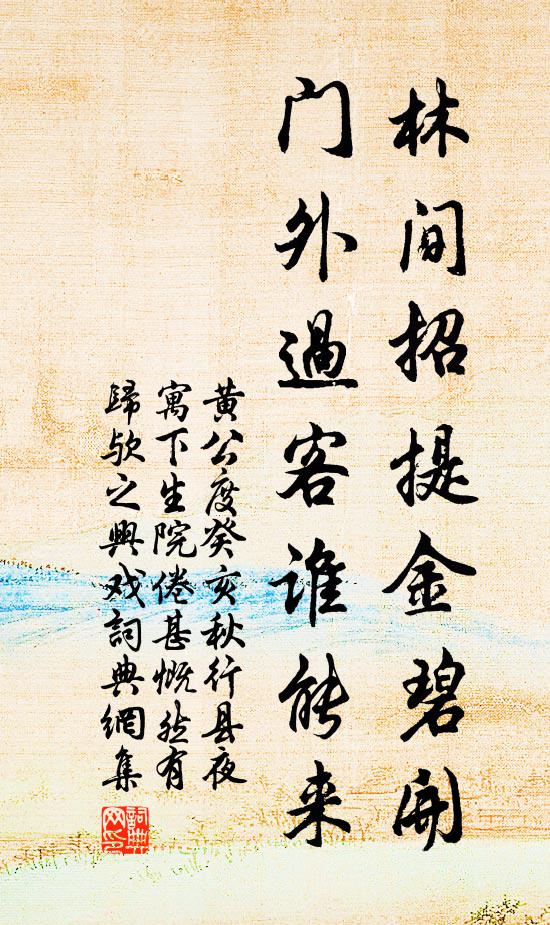 林间招提金碧开
门外過客谁能来
黄公度癸亥秋行县夜
寓下生院倦甚慨然有
歸欤之興戏詞典網集
詞典网印